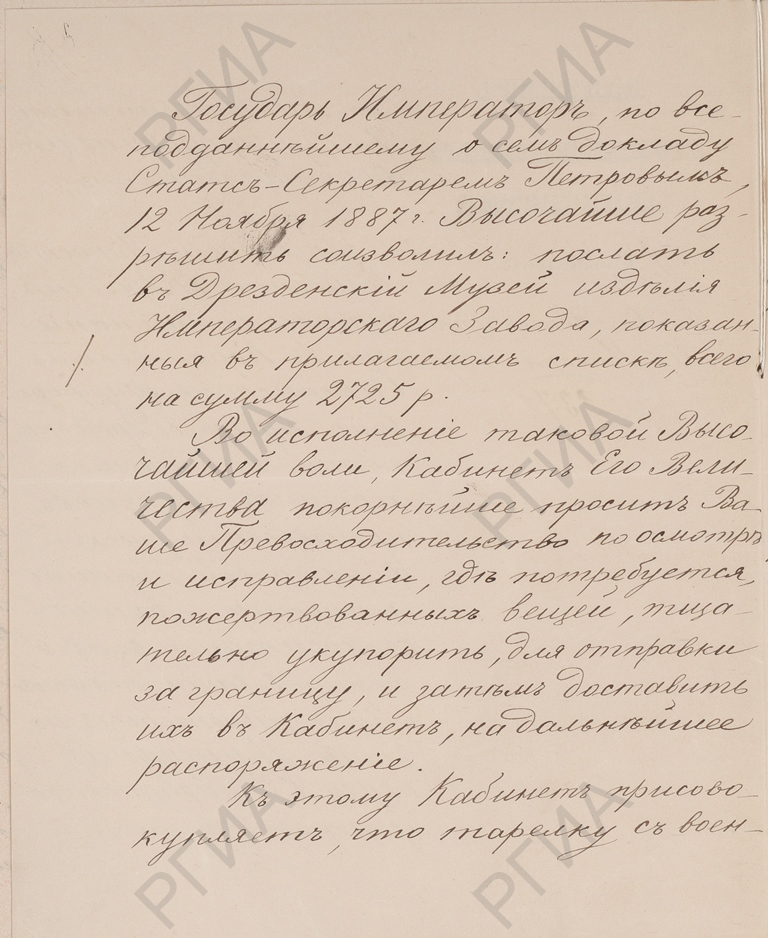 Государь Императоръ, по все-
подданнѣйшему о семъ докладу
Статсъ-Секретаремъ Петровымъ,
12 Ноября 1887 г. Высочайше раз-
рѣшить соизволилъ: послать
въ Дрезденскій Музей издѣлія
Императорскаго Завода, показан-
ныя въ прилагаемомъ спискѣ, всего
на сумму 2725 р.
Во исполненіе таковой Высо-
чайшей воли, Кабинетъ Его Вели-
чества покорнѣйше проситъ Ва-
ше Превосходительство по осмотрѣ
и исправленіи, гдѣ потребуется,
пожертвованныхъ вещей, тща-
тельно укупорить, для отправки
за границу, и затѣмъ доставить
ихъ въ Кабинетъ, на дальнѣйшее
распоряженіе.
Къ этому Кабинетъ присово-
купляетъ, что тарелку съ воен-
РГИА
РГИА
РГИА
РГИА
РГИА
РГИА